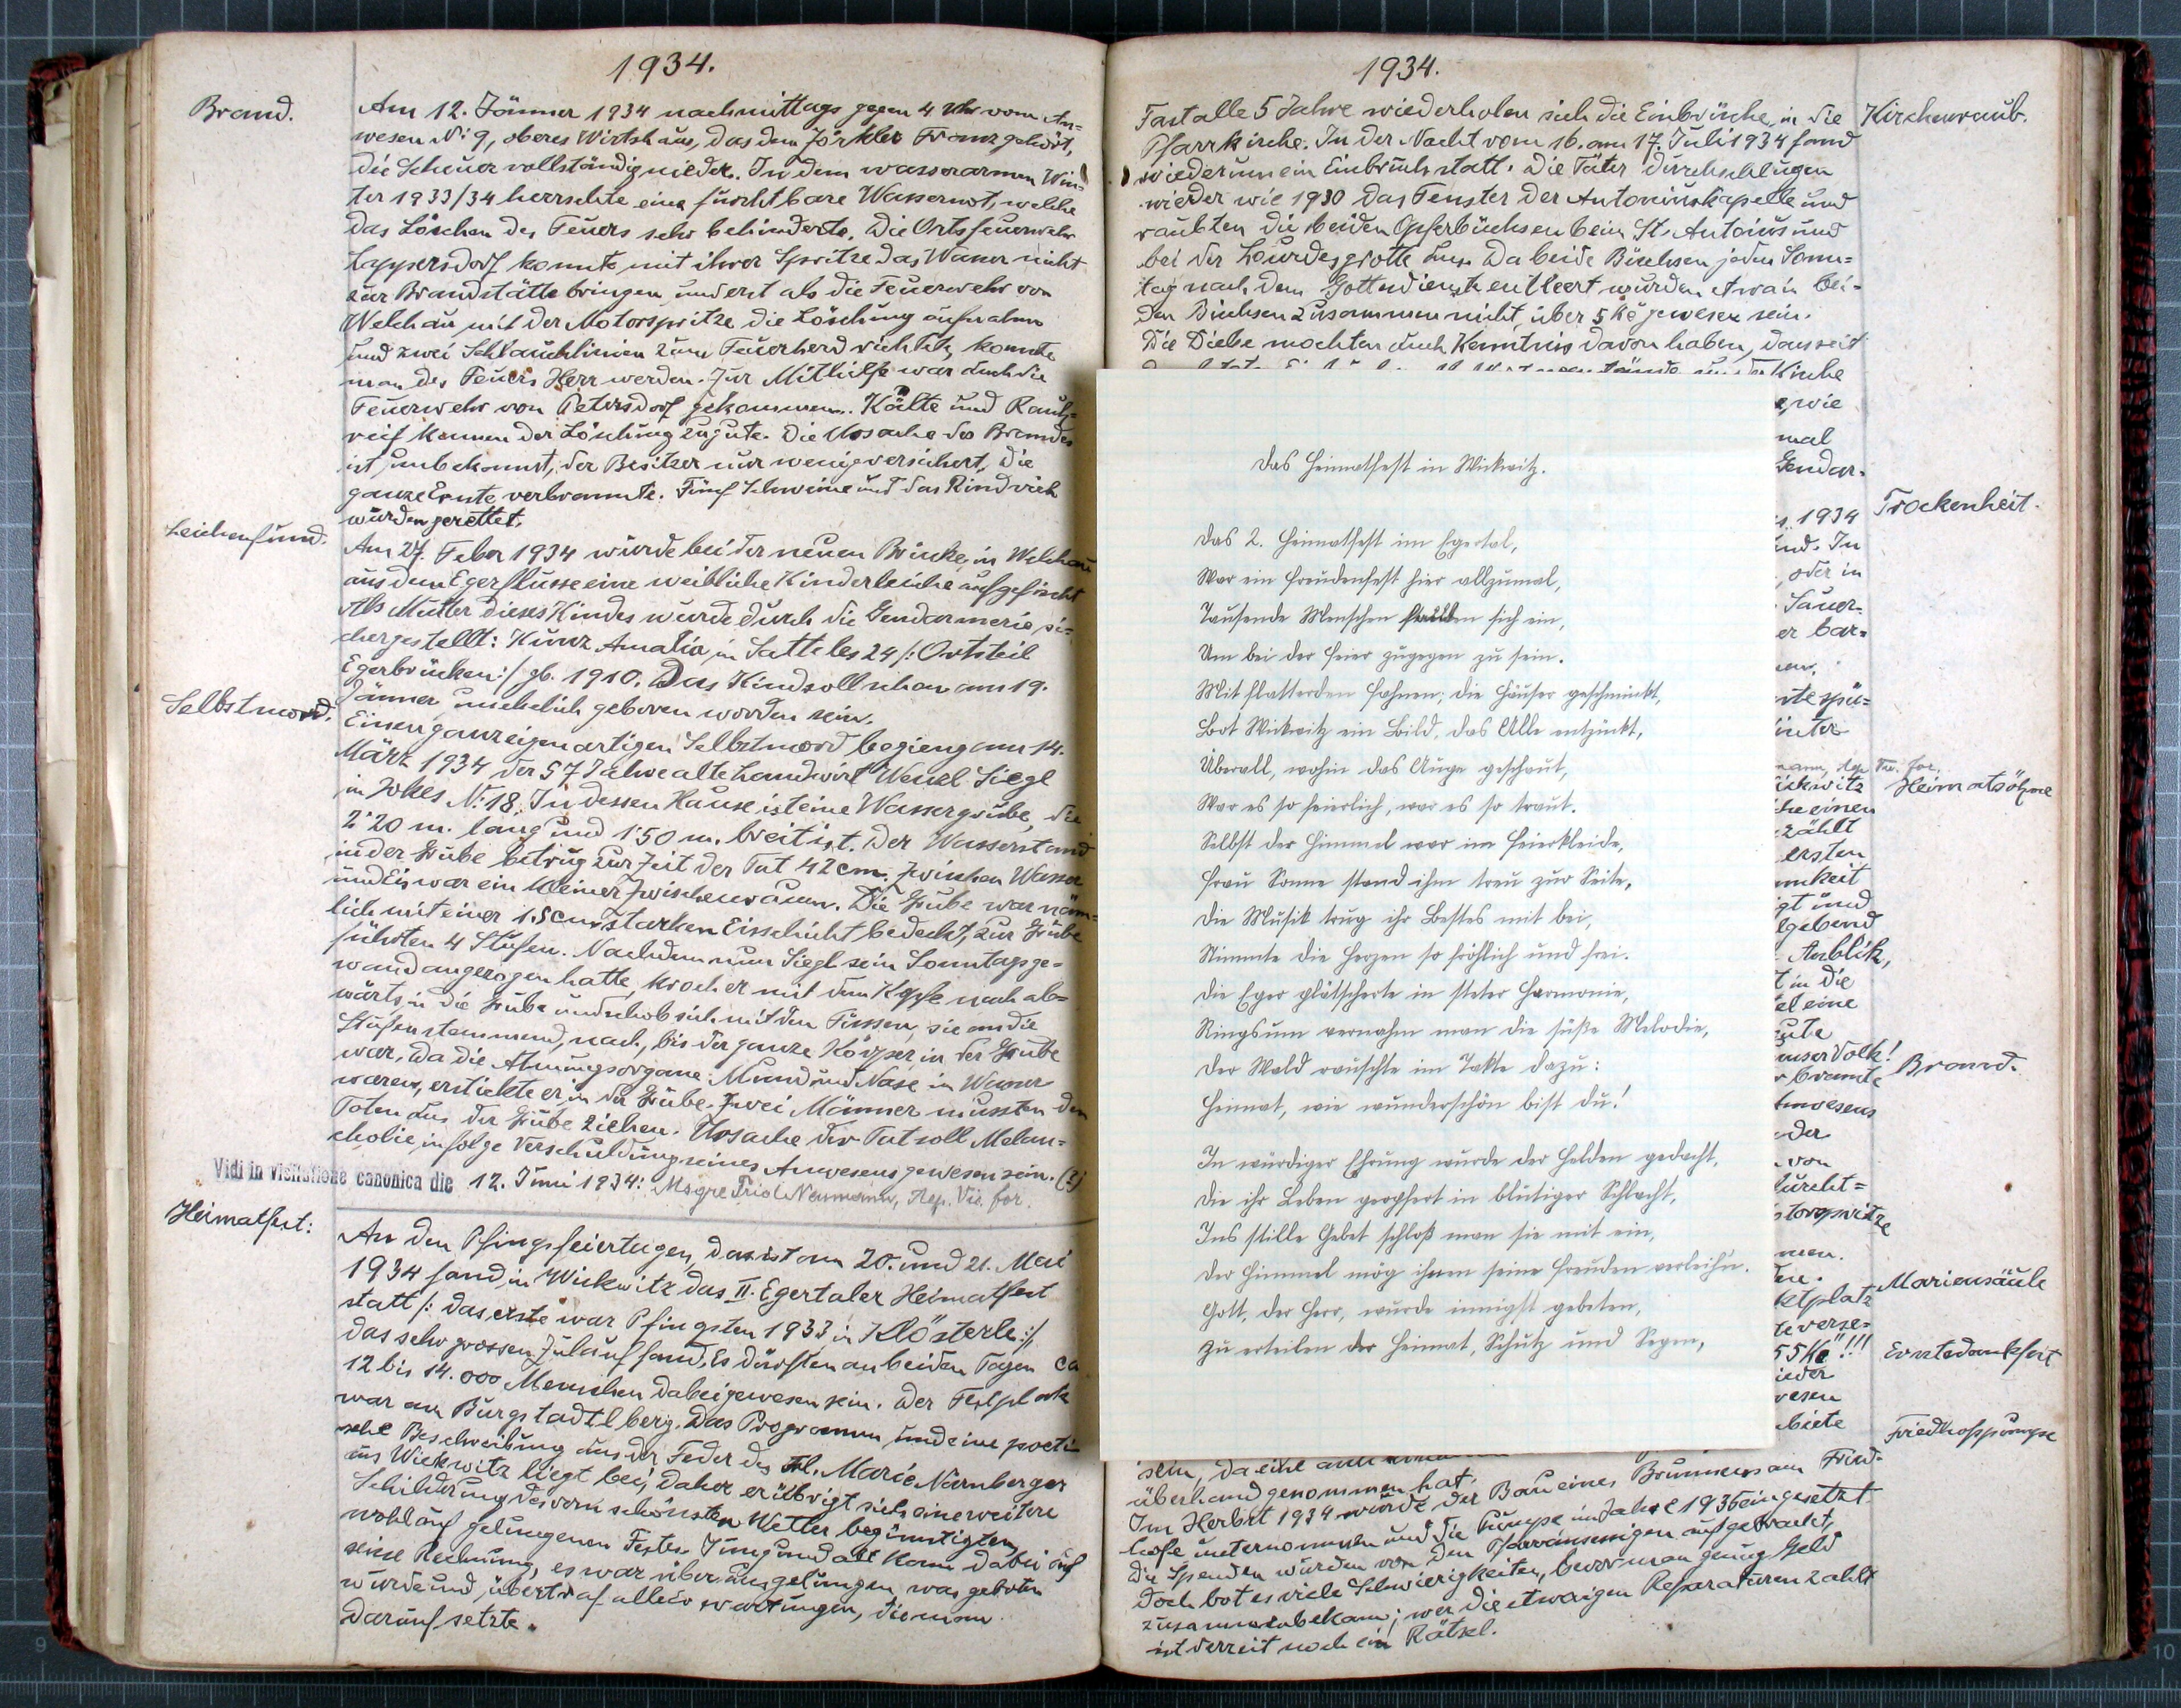 1934.
Brand.
Am 12. Jänner 1934 nachmittags gegen 4 Uhr vom An=
wesen N: 9, oberes Wirtshaus, das dem Zörkler Franz gehört,
die Scheuer vollständig nieder. In dem wasserarmen Win=
ter 1933/34 herrschte eine furchtbare Wassernot, welche
das Löschen des Feuers sehr behinderte. Die Ortsfeuerwehr
Lappersdorf konnte mit ihrer Spritze das Wasser nicht
zur Brandstätte bringen und erst als die Feuerwehr von
Welchau mit der Motorspritze die Löschung aufnahm
und zwei Schlauchlinien zum Feuerherd richtete, konnte
man des Feuers Herr werden. Zur Mithilfe war auch die
Feuerwehr von Petersdorf gekommen. Kälte und Rauh=
reif kamen der Löschung zugute. Die Ursache des Brandes
ist unbekannt, der Besitzer nur wenig versichert, die
ganze Ernte verbrannte. Fünf Schweine und das Rindvieh
wurden gerettet.
Leichenfund.
Am 27. Feber 1934 wurde bei der neuen Brücke in Welchau
aus dem Egerflusse eine weibliche Kinderleiche aufgefischt
Als Mutter dieses Kindes wurde durch die Gendarmerie si=
chergestellt: Kunz Amalia in Satteles 24 /: Ortsteil
Egerbrücken:/ gb. 1910. Das Kind soll schon am 19.
Jänner unehelich geboren worden sein.
Selbstmord.
Einen ganz eigenartigen Selbstmord begieng am 14.
März 1934 der 57 Jahre alte Landwirt Wenzl Siegl
in Jokes N: 18. In dessen Hause ist eine Wassergrube, die
2'20 m. lang und 1'50 m. breit ist. Der Wasserstand
in der Grube betrug zur Zeit der Tat 42 cm. Zwischen Wasser
und Eis war ein kleiner Zwischenraum. Die Grube war näm=
lich mit einer 1.5 cm starken Eisschicht bedeckt, zur Grube
führten 4 Stufen. Nachdem nun Siegl sein Sonntagsge=
wand angezogen hatte, kroch er mit dem Kopfe nach ab=
wärts in die Grube und schob sich mit den Füssen, sie an die
Stufen stemmend, nach, bis der ganze Körper in der Grube
war. Da die Atmungsorgane: Mund und Nase im Wasser
waren, erstickte er in der Grube. Zwei Männer mussten den
Toten aus der Grube ziehen. Ursache der Tat soll Melan=
cholie infolge Verschuldung seines Anwesens gewesen sein. (?)
Vidi in visitatione canonica die 12. Juni 1934: Msgre Neumann, Aep. Vic. for.
Heimatfest:
An den Pfingsfeiertagen, das ist am 20. und 21. Mai
1934 fand in Wickwitz das II. Egertaler Heimatfest
statt /: das erste war Pfingsten 1933 in Klösterle :/,
das sehr grossen Zulauf fand. Es dürften an beiden Tagen ca
12 bis 14.000 Menschen dabeigewesen sein. Der Festplatz
war am Burgstadtlberg. Das Programm und eine poeti
sche Beschreibung aus der Feder des Frl. Marie Nürnberger
aus Wickwitz liegt bei, daher erübrigt sich eine weitere
Schilderung des vom schönsten Wetter begünstigten
wohlauf gelungenen Festes. Jung und alt kam dabei auf
seine Rechnung, es war überaus gelungen, was geboten
wurde und übertraf alle Erwartungen, die man
darauf setzte.
1934.
Fast alle 5 Jahre wiederholen sich die Einbrüche in die
Kirchenraub.
Pfarrkirche. In der Nacht vom 16. am 17. Juli 1934 fand
wiederum ein Einbruch statt. Die Täter durchschlugen
wieder wie 1930 das Fenster der Antoniuskapelle und
raubten die beiden Opferbüchsen beim St. Antonius und
bei der Lourdesgrotte aus. Da beide Büchsen jeden Sonn=
tag nach dem Gottesdienste entleert wurden, etwa in bei=
den Büchsen zusammen nicht über 5 Kč gewesen sein.
Die Diebe mochten auch Kenntnis davon haben, dass seit
Kirche
wie
mal
Gendar=
1934
Trockenheit.
und. In
oder in
Sauer=
er bar=
Das Heimatfest in Wickwitz.
Das 2. Heimatfest im Egertal,
War ein Freudenfest hier allzumal,
Tausende Menschen fanden sich ein,
Um bei der Feier zugegen zu sein.
Mit flatterden Fahnen, die Häuser geschmückt,
Bot Wickwitz ein Bild, das Alle entzückt,
Überall, wohin das Auge geschaut,
War es so feierlich, war es so traut.
Selbst der Himmel war im Feierkleide,
Frau Sonne stand ihm treu zur Seite,
Die Musik trug ihr Bestes mit bei,
Stimmte die Herzen so fröhlich und frei.
Die Eger plätscherte in steter Harmonie,
Ringsum vernahm man die süße Melodie,
Der Wald rauschte im Takte dazu:
Heimat, wie wunderschön bist du!
In würdiger Ehrung wurde der Helden gedacht,
Die ihr Leben geopfert in blutiger Schlacht,
Ins stille Gebet schloß man sie mit ein,
Der Himmel mög ihnen seine Freuden verleih'n.
Gott, der Herr, wurde innigst gebeten,
Zu erteilen der Heimat, Schutz und Segen,
ickwitz
Heimatsöhne
che einen
zählt
ersten
mkeit
gt und
lgebend
Anblick,
t in die
el eine
eute
unser Volk!
brannte
Brand.
Anwesens
oder
von
furcht=
torspritze
men.
Mariensäule
ktplatz
te verse=
55 Kč!!!
Erntedankfest
ieder
wesen
biete
Friedhofspumpe
sein, da eine
überhand genommen hat.
Im Herbst 1934 wurde der Bau eines Brunnens am Fried=
hofe unternommen und die Pumpe im Jahre 1935 eingesetzt
Die Spenden wurden von den Pfarrinsassen aufgebracht,
doch bot es viele Schwierigkeiten, bevor man genug Geld
zusammenbekam; wer die etwaigen Reparaturen zahlt
ist derzeit noch ein Rätsel.
9
10